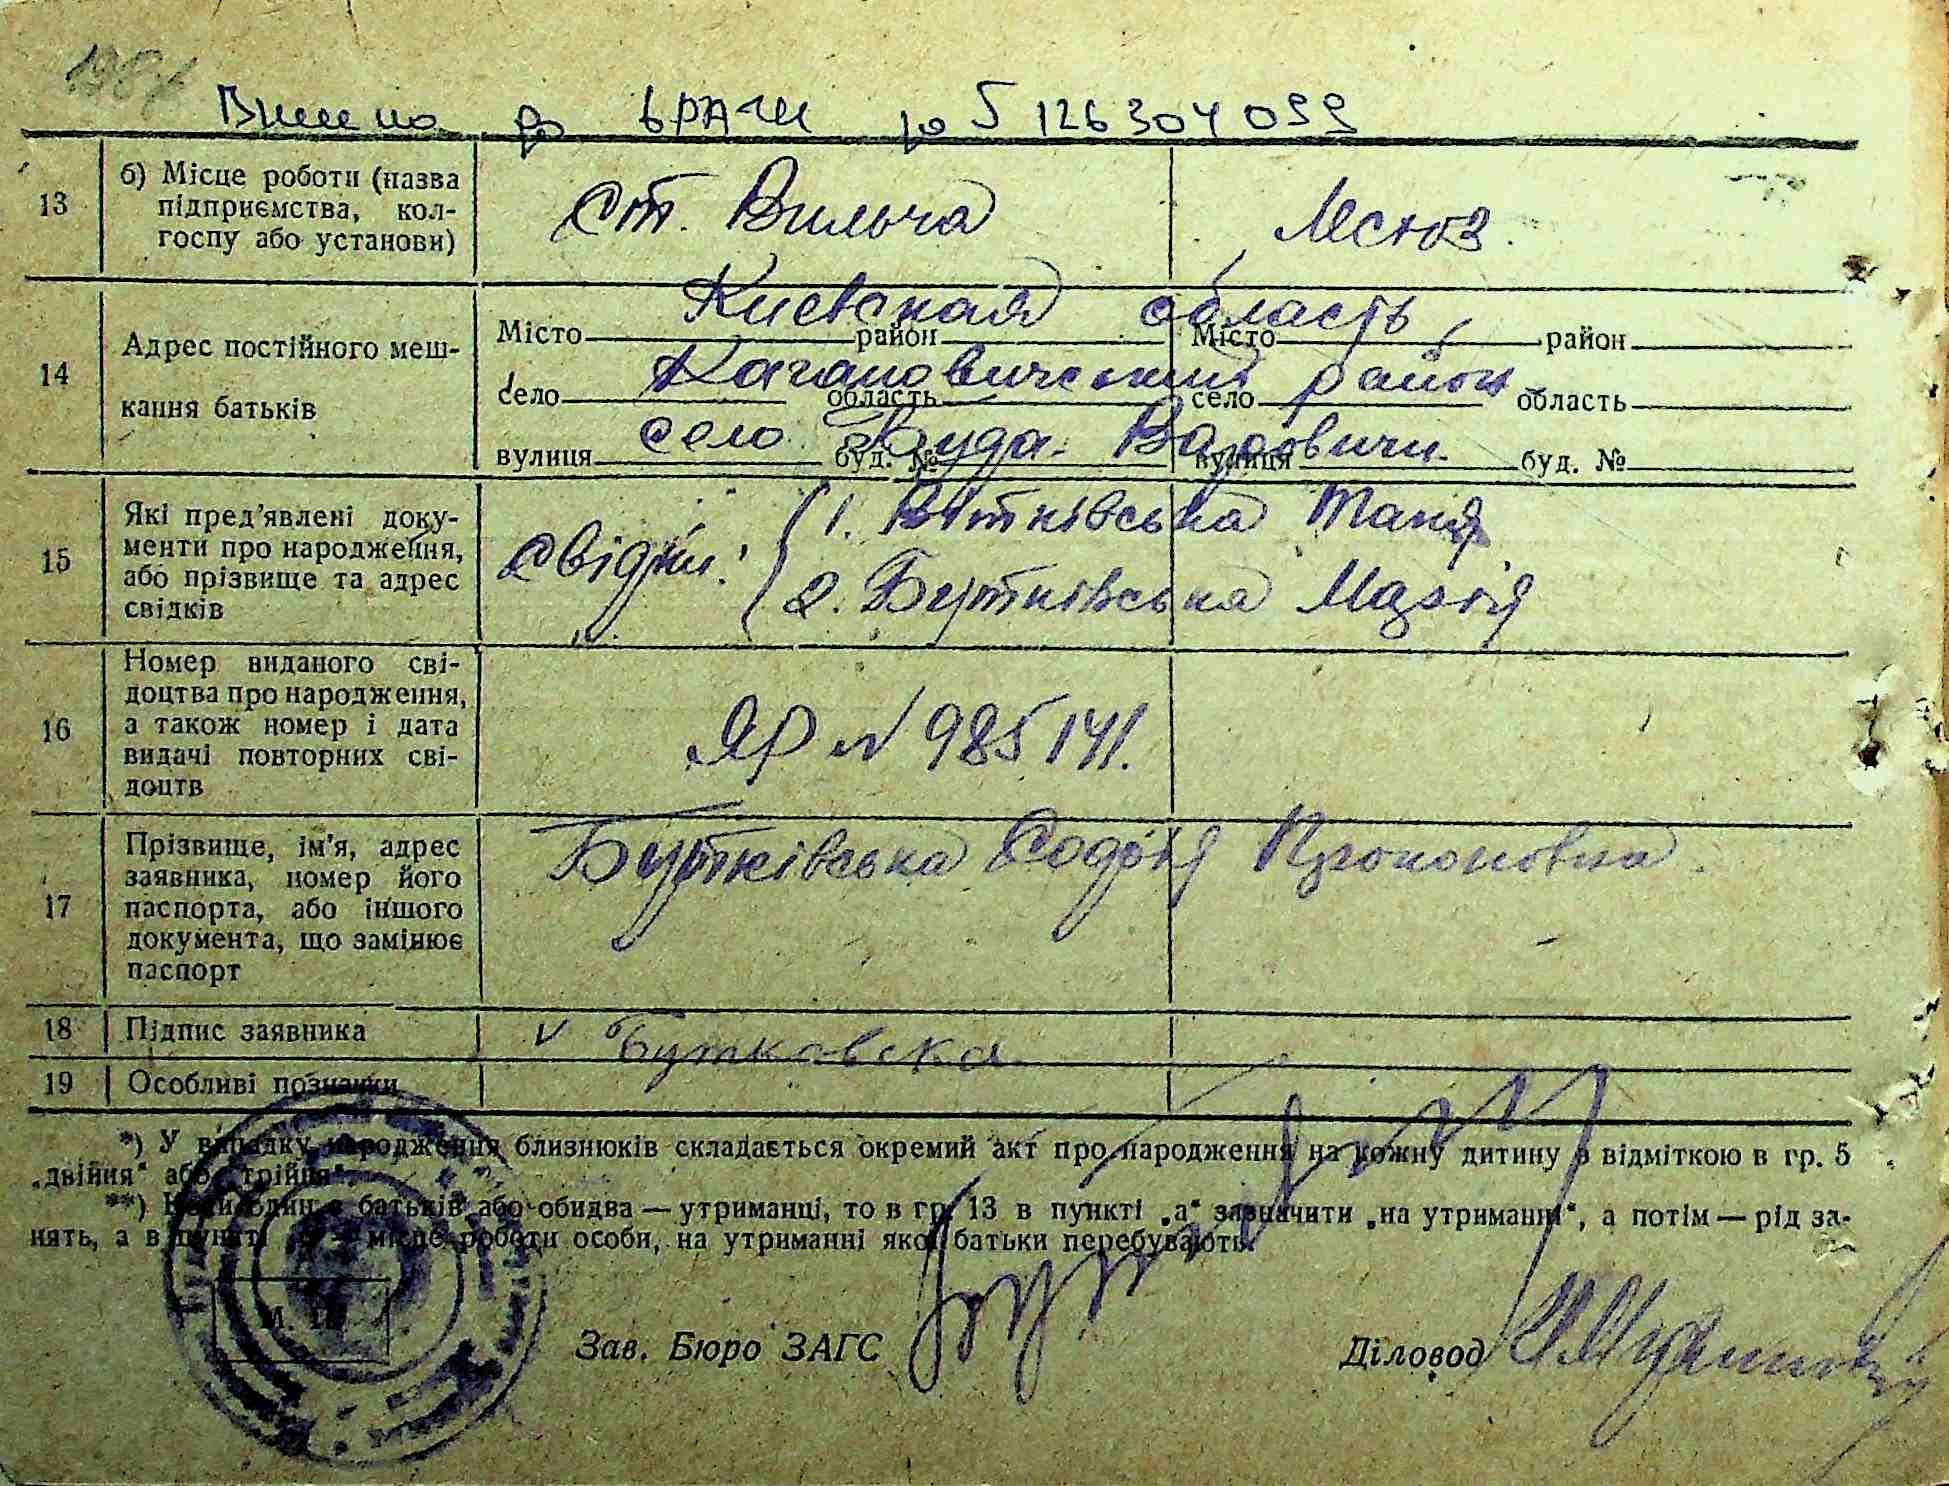 Внесено до ВРАЦИ ро 5126304099
13
б) Місце роботи (назва підприємства, колгоспу або установи)
ст. Вильча
14
Адрес постійного мешкання батьків
Киевская область,
Місто район Місто район
Кагановический район
село область село область
село Буда. Варовичи.
вулиця буд. № вулиця буд. №
15
Які пред’явлені документи про народження, або прізвище та адрес свідків
Свідки:
1. Таня
2. Бутківська Марія
16
Номер виданого свідоцтва про народження, а також номер і дата видачі повторних свідоцтв
ЯР № 985141.
17
Прізвище, ім’я, адрес заявника, номер його паспорта, або іншого документа, що замінює паспорт
Бутківська Софія Прокоповна
18
Підпис заявника
v Бутковска
19
Особливі познаки
*) У випадку народження близнюків складається окремий акт про народження на кожну дитину з відміткою в гр. 5
„двійня“ або „трійня“.
**) Коли один з батьків або обидва — утриманці, то в гр. 13 в пункті „а“ зазначити „на утриманні“, а потім — рід за-
нять, а в пункті місце роботи особи, на утриманні якої батьки перебувають.
М. П.
Зав. Бюро ЗАГС
Діловод